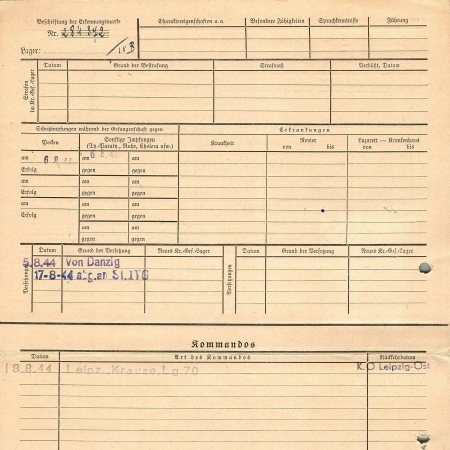 Beschriftung der Erkennungsmarke
Nr. 284342
Lager: IV B
Charaktereigenschaften u. a.
Besondere Fähigkeiten
Sprachkenntnisse
Führung
Strafen im Kr.-Gef.-Lager
Datum
Grund der Bestrafung
Strafmaß
Verbüßt, Datum
Schutzimpfungen während der Gefangenschaft gegen
Erkrankungen
Pocken
Sonstige Impfungen
(Ty.-Paraty., Ruhr, Cholera usw.)
Krankheit
Revier
von bis
Lazarett — Krankenhaus
von bis
am 6.8.44 am 6.8.44 am
Erfolg gegen gegen
am am am
Erfolg gegen gegen
am am am
Erfolg gegen gegen
am am
gegen gegen
Versetzungen
Datum
Grund der Versetzung
Neues Kr.-Gef.-Lager
Versetzungen
Datum
Grund der Versetzung
Neues Kr.-Gef.-Lager
5.8.44 Von Danzig
17-8-44 abg.an St.IVG
Kommandos
Datum
Art des Kommandos
Rückkehrdatum
18.8.44 Leipz., Krause, Lg 70 K.O. Leipzig-Ost